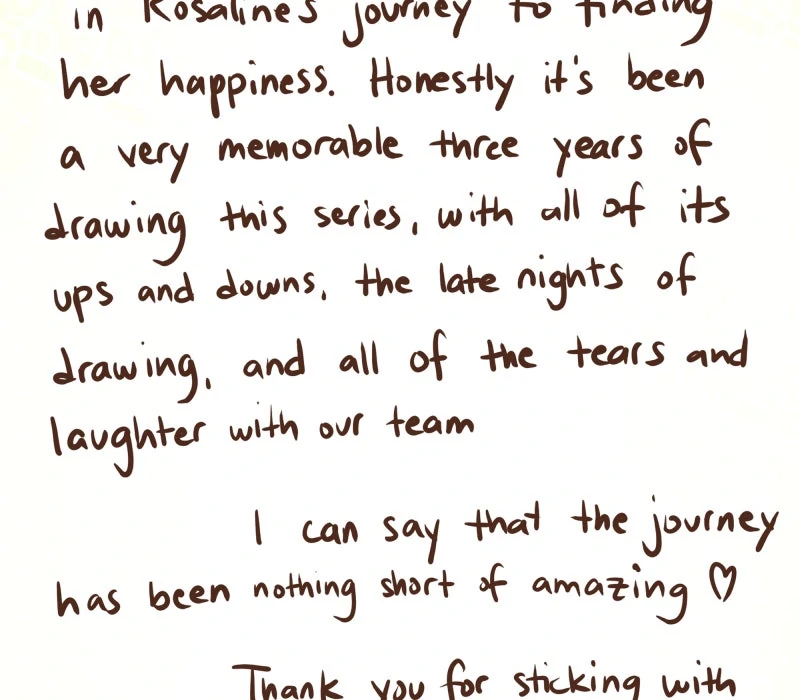 in Rosaline's journey to finding
her happiness. Honestly it's been
a very memorable three years of
drawing this series, with all of its
ups and downs, the late nights of
drawing, and all of the tears and
laughter with our team
I can say that the journey
has been nothing short of amazing ♡
Thank you for sticking with